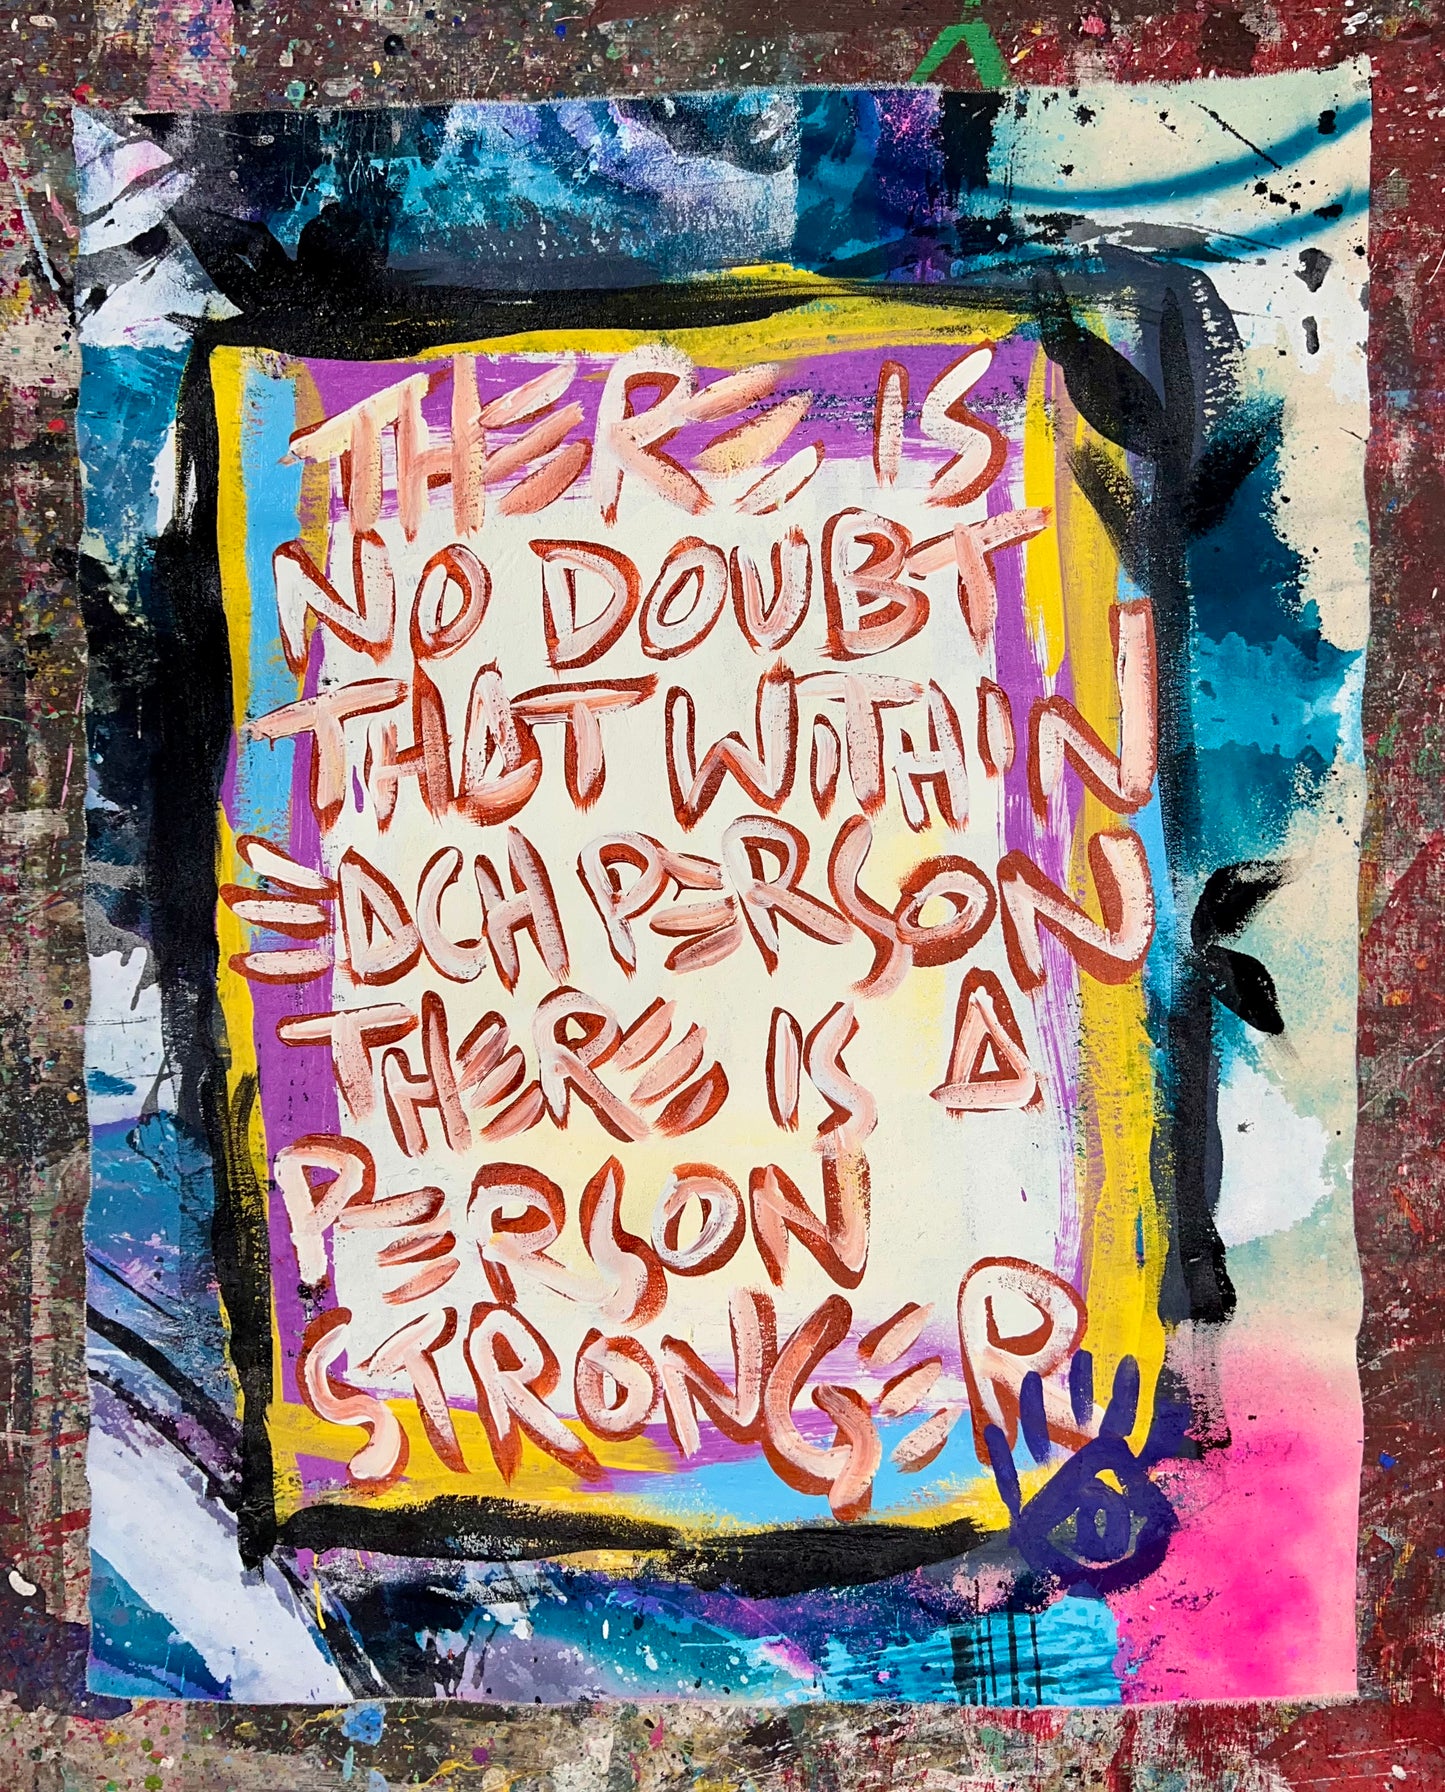 THERE IS
NO DOUBT
THAT WITHIN
EACH PERSON
THERE IS A
PERSON
STRONGER